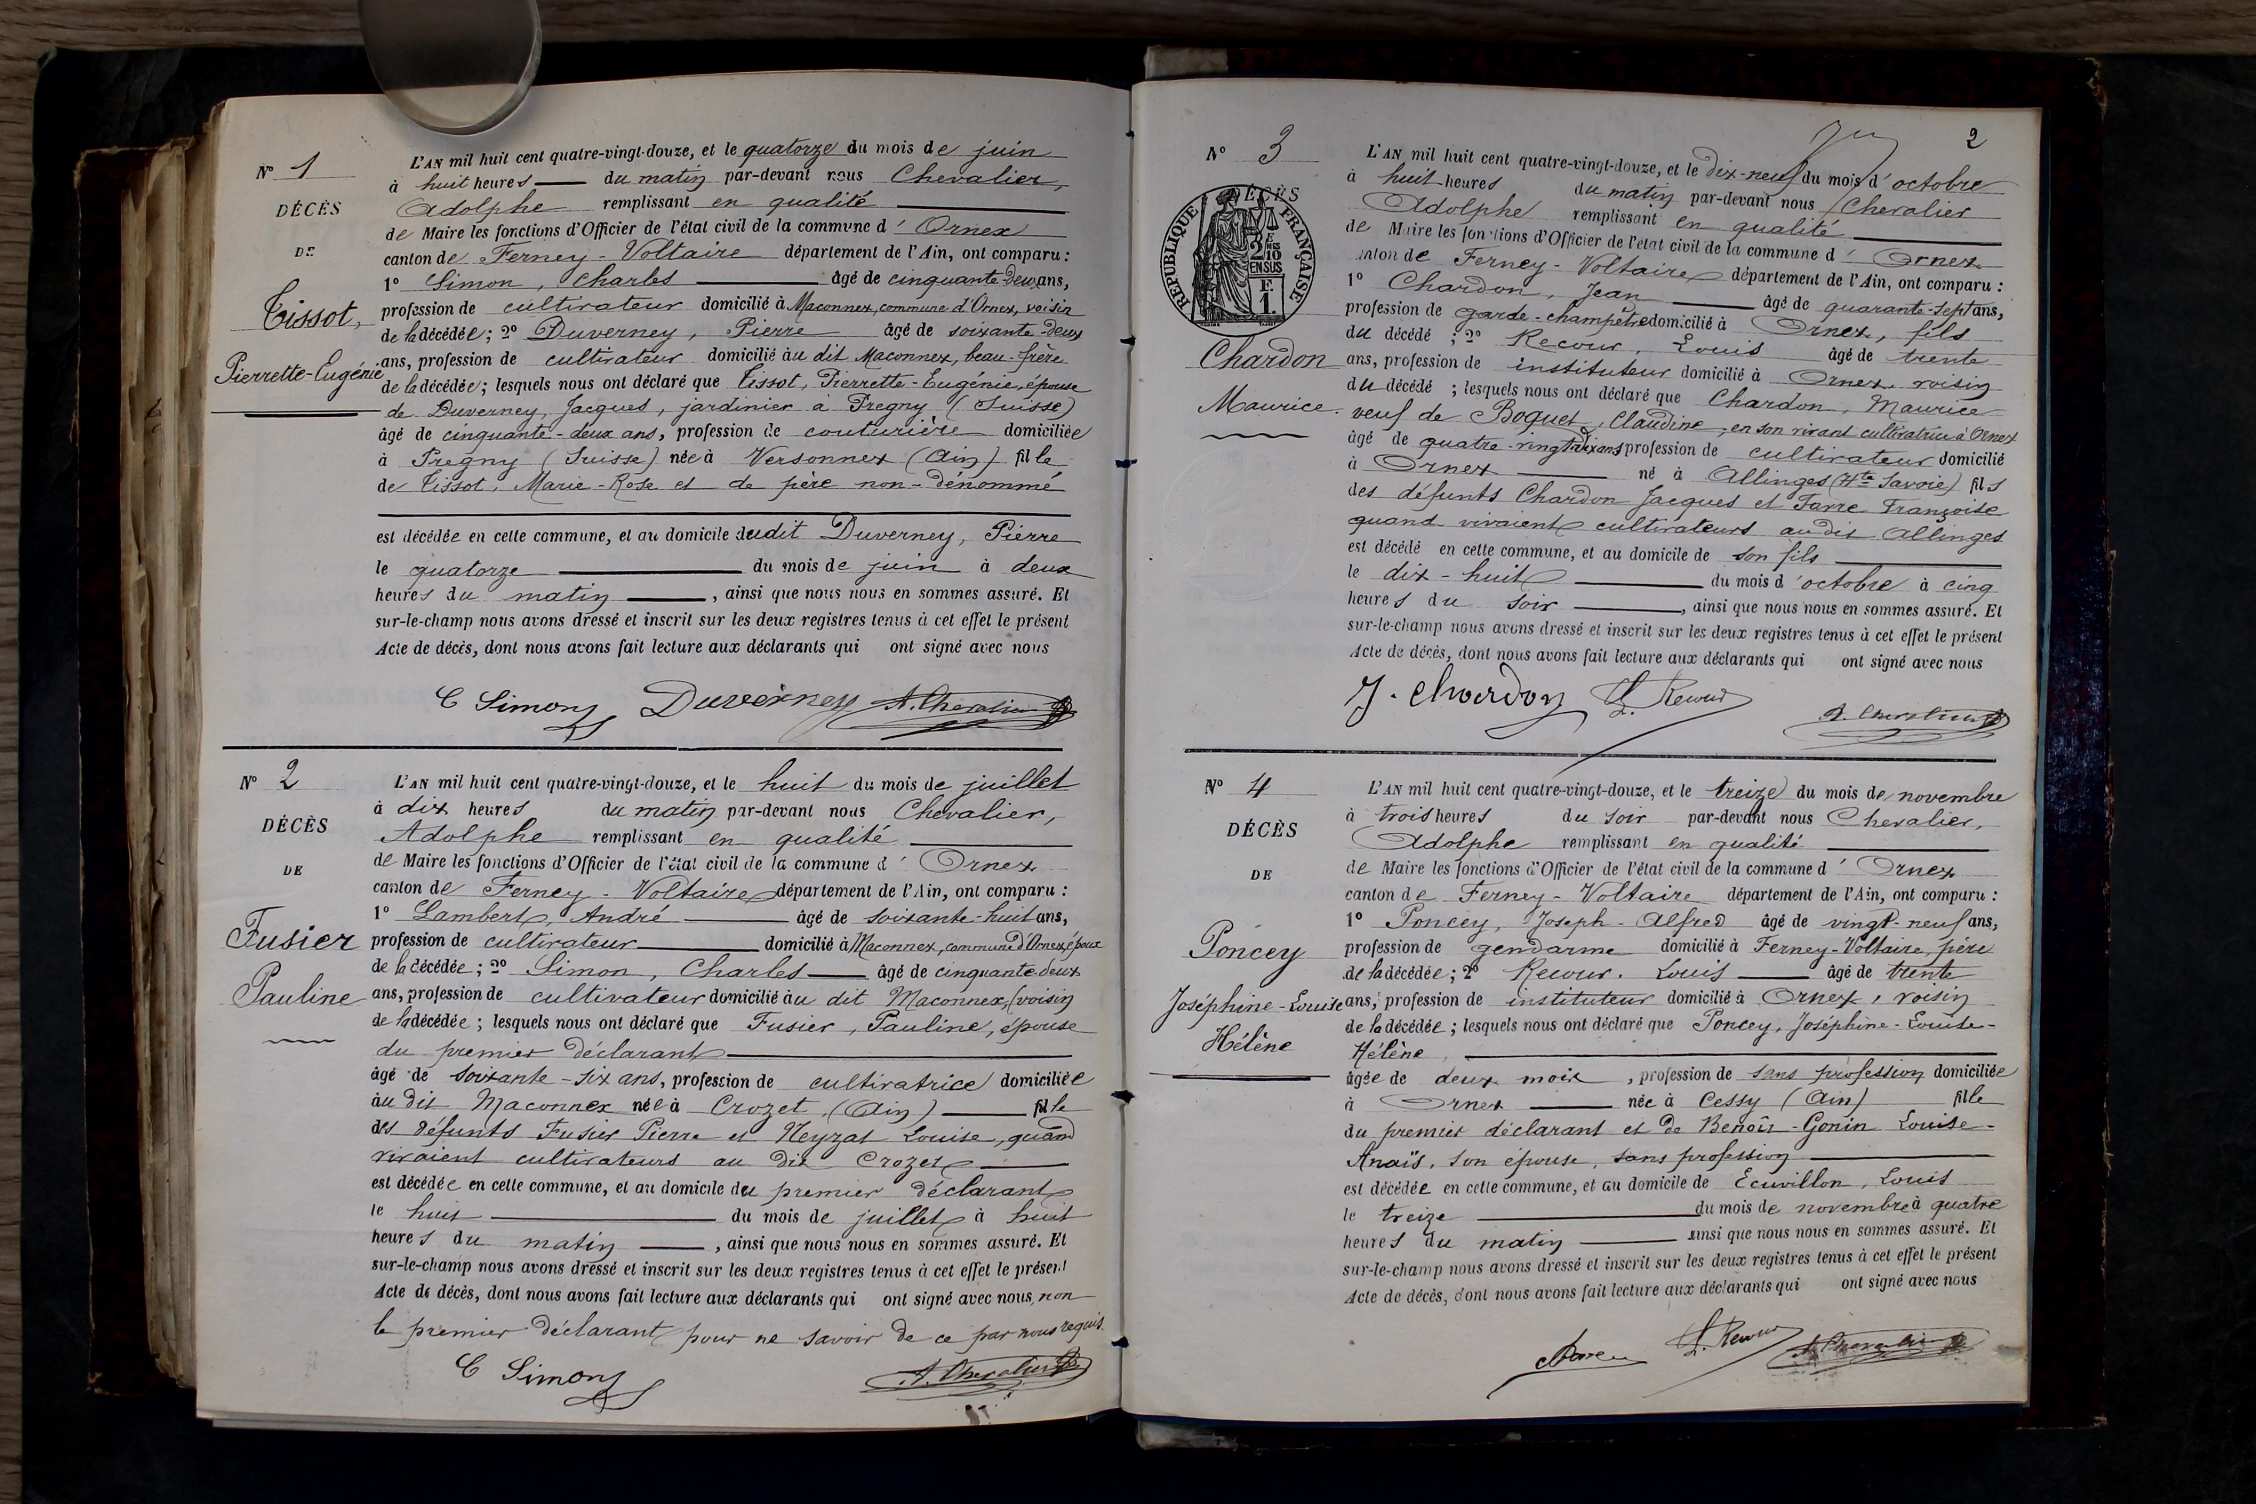 N° 1
DÉCÈS
DE
Tissot,
Pierrette-Eugénie
L'AN mil huit cent quatre-vingt-douze, et le quatorze du mois de juin
à huit heures du matin par-devant nous Chevalier,
Adolphe remplissant en qualité
de Maire les fonctions d'Officier de l'état civil de la commune d'Ornex
canton de Ferney-Voltaire département de l'Ain, ont comparu :
1° Simon, Charles âgé de cinquante-deux ans,
profession de cultivateur domicilié à Maconnex, commune d'Ornex, voisin
de la décédée ; 2° Duverney, Pierre âgé de soixante-deux
ans, profession de cultivateur domicilié au dit Maconnex, beau-frère
de la décédée ; lesquels nous ont déclaré que Tissot, Pierrette-Eugénie, épouse
de Duverney, Jacques, jardinier à Pregny (Suisse)
âgé de cinquante-deux ans, profession de couturière domiciliée
à Pregny (Suisse) née à Versonnex (Ain) fille
de Tissot, Marie-Rose et de père non-dénommé
est décédée en cette commune, et au domicile dudit Duverney, Pierre
le quatorze du mois de juin à deux
heures du matin, ainsi que nous nous en sommes assuré. Et
sur-le-champ nous avons dressé et inscrit sur les deux registres tenus à cet effet le présent
Acte de décès, dont nous avons fait lecture aux déclarants qui ont signé avec nous
C Simon Duverney A. Chevalier
N° 2
DÉCÈS
DE
Fusier
Pauline
L'AN mil huit cent quatre-vingt-douze, et le huit du mois de juillet
à dix heures du matin par-devant nous Chevalier,
Adolphe remplissant en qualité
de Maire les fonctions d'Officier de l'état civil de la commune d'Ornex
canton de Ferney-Voltaire département de l'Ain, ont comparu :
1° Lambert, André âgé de soixante-huit ans,
profession de cultivateur domicilié à Maconnex, commune d'Ornex, époux
de la décédée ; 2° Simon, Charles âgé de cinquante-deux
ans, profession de cultivateur domicilié au dit Maconnex, (voisin
de la décédée ; lesquels nous ont déclaré que Fusier, Pauline, épouse
du premier déclarant
âgé de soixante-six ans, profession de cultivatrice domiciliée
au dit Maconnex née à Crozet, (Ain) fille
des défunts Fusier Pierre et Neyzat Louise, quand
vivaient cultivateurs au dit Crozet
est décédée en cette commune, et au domicile du premier déclarant
le huit du mois de juillet à huit
heures du matin, ainsi que nous nous en sommes assuré. Et
sur-le-champ nous avons dressé et inscrit sur les deux registres tenus à cet effet le présent
Acte de décès, dont nous avons fait lecture aux déclarants qui ont signé avec nous, non
le premier déclarant pour ne savoir de ce par nous requis.
C Simon A. Chevalier
2
N° 3
DÉCÈS
RÉPUBLIQUE FRANÇAISE
2 10
EN SUS
F.
1.
Chardon
Maurice.
L'AN mil huit cent quatre-vingt-douze, et le dix-neuf du mois d'octobre
à huit heures du matin par-devant nous Chevalier
Adolphe remplissant en qualité
de Maire les fonctions d'Officier de l'état civil de la commune d'Ornex
canton de Ferney-Voltaire département de l'Ain, ont comparu :
1° Chardon, Jean âgé de quarante-sept ans,
profession de garde-champêtre domicilié à Ornex, fils
du décédé ; 2° Recour, Louis âgé de trente
ans, profession de instituteur domicilié à Ornex, voisin
du décédé ; lesquels nous ont déclaré que Chardon, Maurice
veuf de Boquet, Claudine, en son vivant cultivatrice à Ornex
âgé de quatre-vingt-dix ans profession de cultivateur domicilié
à Ornex né à Allinges (Hte Savoie) fils
des défunts Chardon Jacques et Favre Françoise
quand vivaient cultivateurs au dit Allinges
est décédé en cette commune, et au domicile de son fils
le dix-huit du mois d'octobre à cinq
heures du soir, ainsi que nous nous en sommes assuré. Et
sur-le-champ nous avons dressé et inscrit sur les deux registres tenus à cet effet le présent
Acte de décès, dont nous avons fait lecture aux déclarants qui ont signé avec nous
J. Chardon L. Recour A. Chevalier
N° 4
DÉCÈS
DE
Poncey
Joséphine-Louise
Hélène
L'AN mil huit cent quatre-vingt-douze, et le treize du mois de novembre
à trois heures du soir par-devant nous Chevalier,
Adolphe remplissant en qualité
de Maire les fonctions d'Officier de l'état civil de la commune d'Ornex
canton de Ferney-Voltaire département de l'Ain, ont comparu :
1° Poncey, Joseph-Alfred âgé de vingt-neuf ans,
profession de gendarme domicilié à Ferney-Voltaire, père
de la décédée ; 2° Recour, Louis âgé de trente
ans, profession de instituteur domicilié à Ornex, voisin
de la décédée ; lesquels nous ont déclaré que Poncey, Joséphine-Louise-
Hélène,
âgée de deux mois, profession de sans profession domiciliée
à Ornex née à Cessy (Ain) fille
du premier déclarant et de Benoît-Gonin Louise-
Anaïs, son épouse, sans profession
est décédée en cette commune, et au domicile de Ecuvillon, Louis
le treize du mois de novembre à quatre
heures du matin ainsi que nous nous en sommes assuré. Et
sur-le-champ nous avons dressé et inscrit sur les deux registres tenus à cet effet le présent
Acte de décès, dont nous avons fait lecture aux déclarants qui ont signé avec nous
L. Recour A. Chevalier